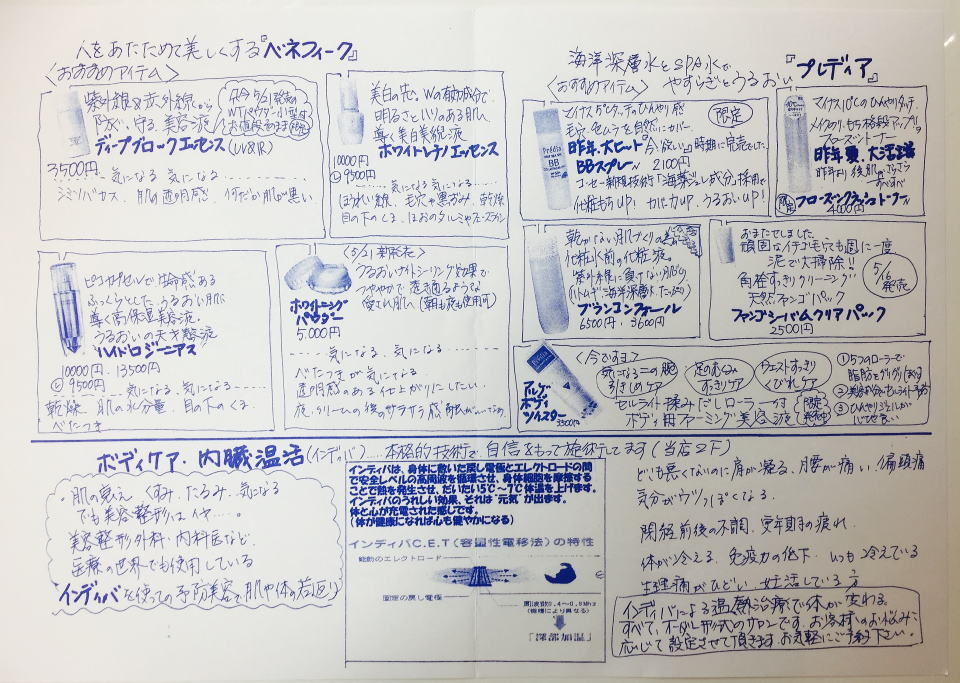 人をあたためて美しくする『ベネフィーク』
〈おすすめアイテム〉
紫外線&赤外線から
防ぐ、守る、美容液
ディープブロックエッセンス(UV&IR)
3500円
気になる 気になる
シミ・ソバカス、肌の透明感、何だか肌が黒い
只今5/21発売の
美白の先。Wの有効成分で
明るさとハリのある肌へ
導く美白美容液
ホワイトレチノエッセンス
10000円
9500円
気になる 気になる
目の下のくま、ほおのタルミやフェースライン
ピュッセルで生命感ある
ふっくらとした、うるおい肌に
導く高保湿美容液。
うるおいの天才整液
ハイドロジーニアス
10000円・13500円
9500円
気になる、気になる
乾燥、肌の水分量、目の下のくま、
べたつき
〈5/21新発売〉
うるおいナイトシーリング効果で
つややかで透き通るような
愛され肌へ(朝も夜も使用可)
ホワイトニング
パウダー
5.000円
気になる、気になる
べたつきが気になる
透明感のある仕上がりにしたい
夜、クリームの後のサラサラ感
海洋深層水とSPA水で
やすらぎとうるおい『プレディア』
〈おすすめアイテム〉
マイナス5℃タッチのひんやり感
毛穴、色ムラを自然にカバー
限定
昨年、大ヒット
時期に完売でした
BBスプレー 2100円
コーセー新規技術「海藻ジュレ成分」採用で
化粧もちUP! カバー力UP! うるおいUP!
マイナス10℃のひんやりタッチ。
メイクのり、もち格段アップの
フローズントナー
昨年夏、大活躍
すべすべ
限定
フローズンクラッシュトナー
4000円
乾かない肌づくりの
化粧水前の化粧液。
紫外線に負けない肌づくり
(ハトムギ・海洋深層水たっぷり)
ブランコンフォール
6500円・3600円
おまたせしました。
頑固なイチゴ毛穴も週に一度
泥で大掃除!!
角栓すっきりクリーニング
天然ファンゴパック
5/16発売
ファンゴシーバムクリアパック
2500円
〈今ですョ〉
気になる二の腕
引きしめケア
足のむくみ
すっきりケア
ウエストすっきり
くびれケア
アルゲ
ボディ
ツイスター
3300円
セルライト揉みだしローラー付
ボディ用ファーミング美容液
限定
発売中
①5つのローラーで
脂肪をグリグリ
③ひんやりジェルが
ボディケア・内臓温活(インディバ)……本格的技術で自信をもって施術してます(当店2F)
・肌の衰え くすみ、たるみ、気になる
でも美容整形はイヤ……。
美容整形外科・内科医など、
医療の世界でも使用している
インディバを使っての予防美容で肌や体の若返り
インディバは、身体に敷いた戻し電極とエレクトロードの間
で安全レベルの高周波を循環させ、身体細胞を摩擦する
ことで熱を発生させ、だいたい5℃～7℃体温を上げます。
インディバのうれしい効果、それは"元気"が出ます。
体と心が充電された感じです。
(体が健康になれば心も健やかになる)
インディバC.E.T(容量性電移法)の特性
能動のエレクトロード
固定の戻し電極
周波数0.4～0.6Mhz
(機種により異なる)
「深部加温」
どこも悪くないのに肩が凝る、腰が痛い、偏頭痛
気分がウツっぽくなる。
閉経前後の不調、更年期の疲れ、
体が冷える、免疫力の低下、いつも冷えている
生理痛がひどい、妊活している方
インディバによる温熱治療で体が変わる。
すべて、オーダー形式のサロンです。お客様のお悩みに
応じて設定させて頂きます。お気軽にご予約下さい。